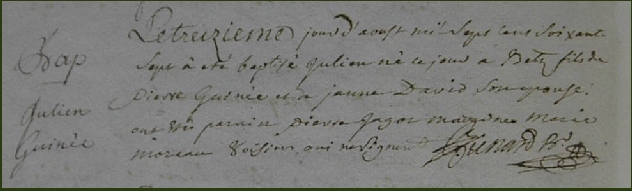 Bap
Julien
Guinée
Le treizieme jour d'aoust mil sept cens soixant
sept à été baptisé Julien né ce jour a Betz fils de
Pierre Guinée et de jeanne David son epouse.
ont été parain Pierre Gagot maraine marie
moreau Voisins qui ne signent